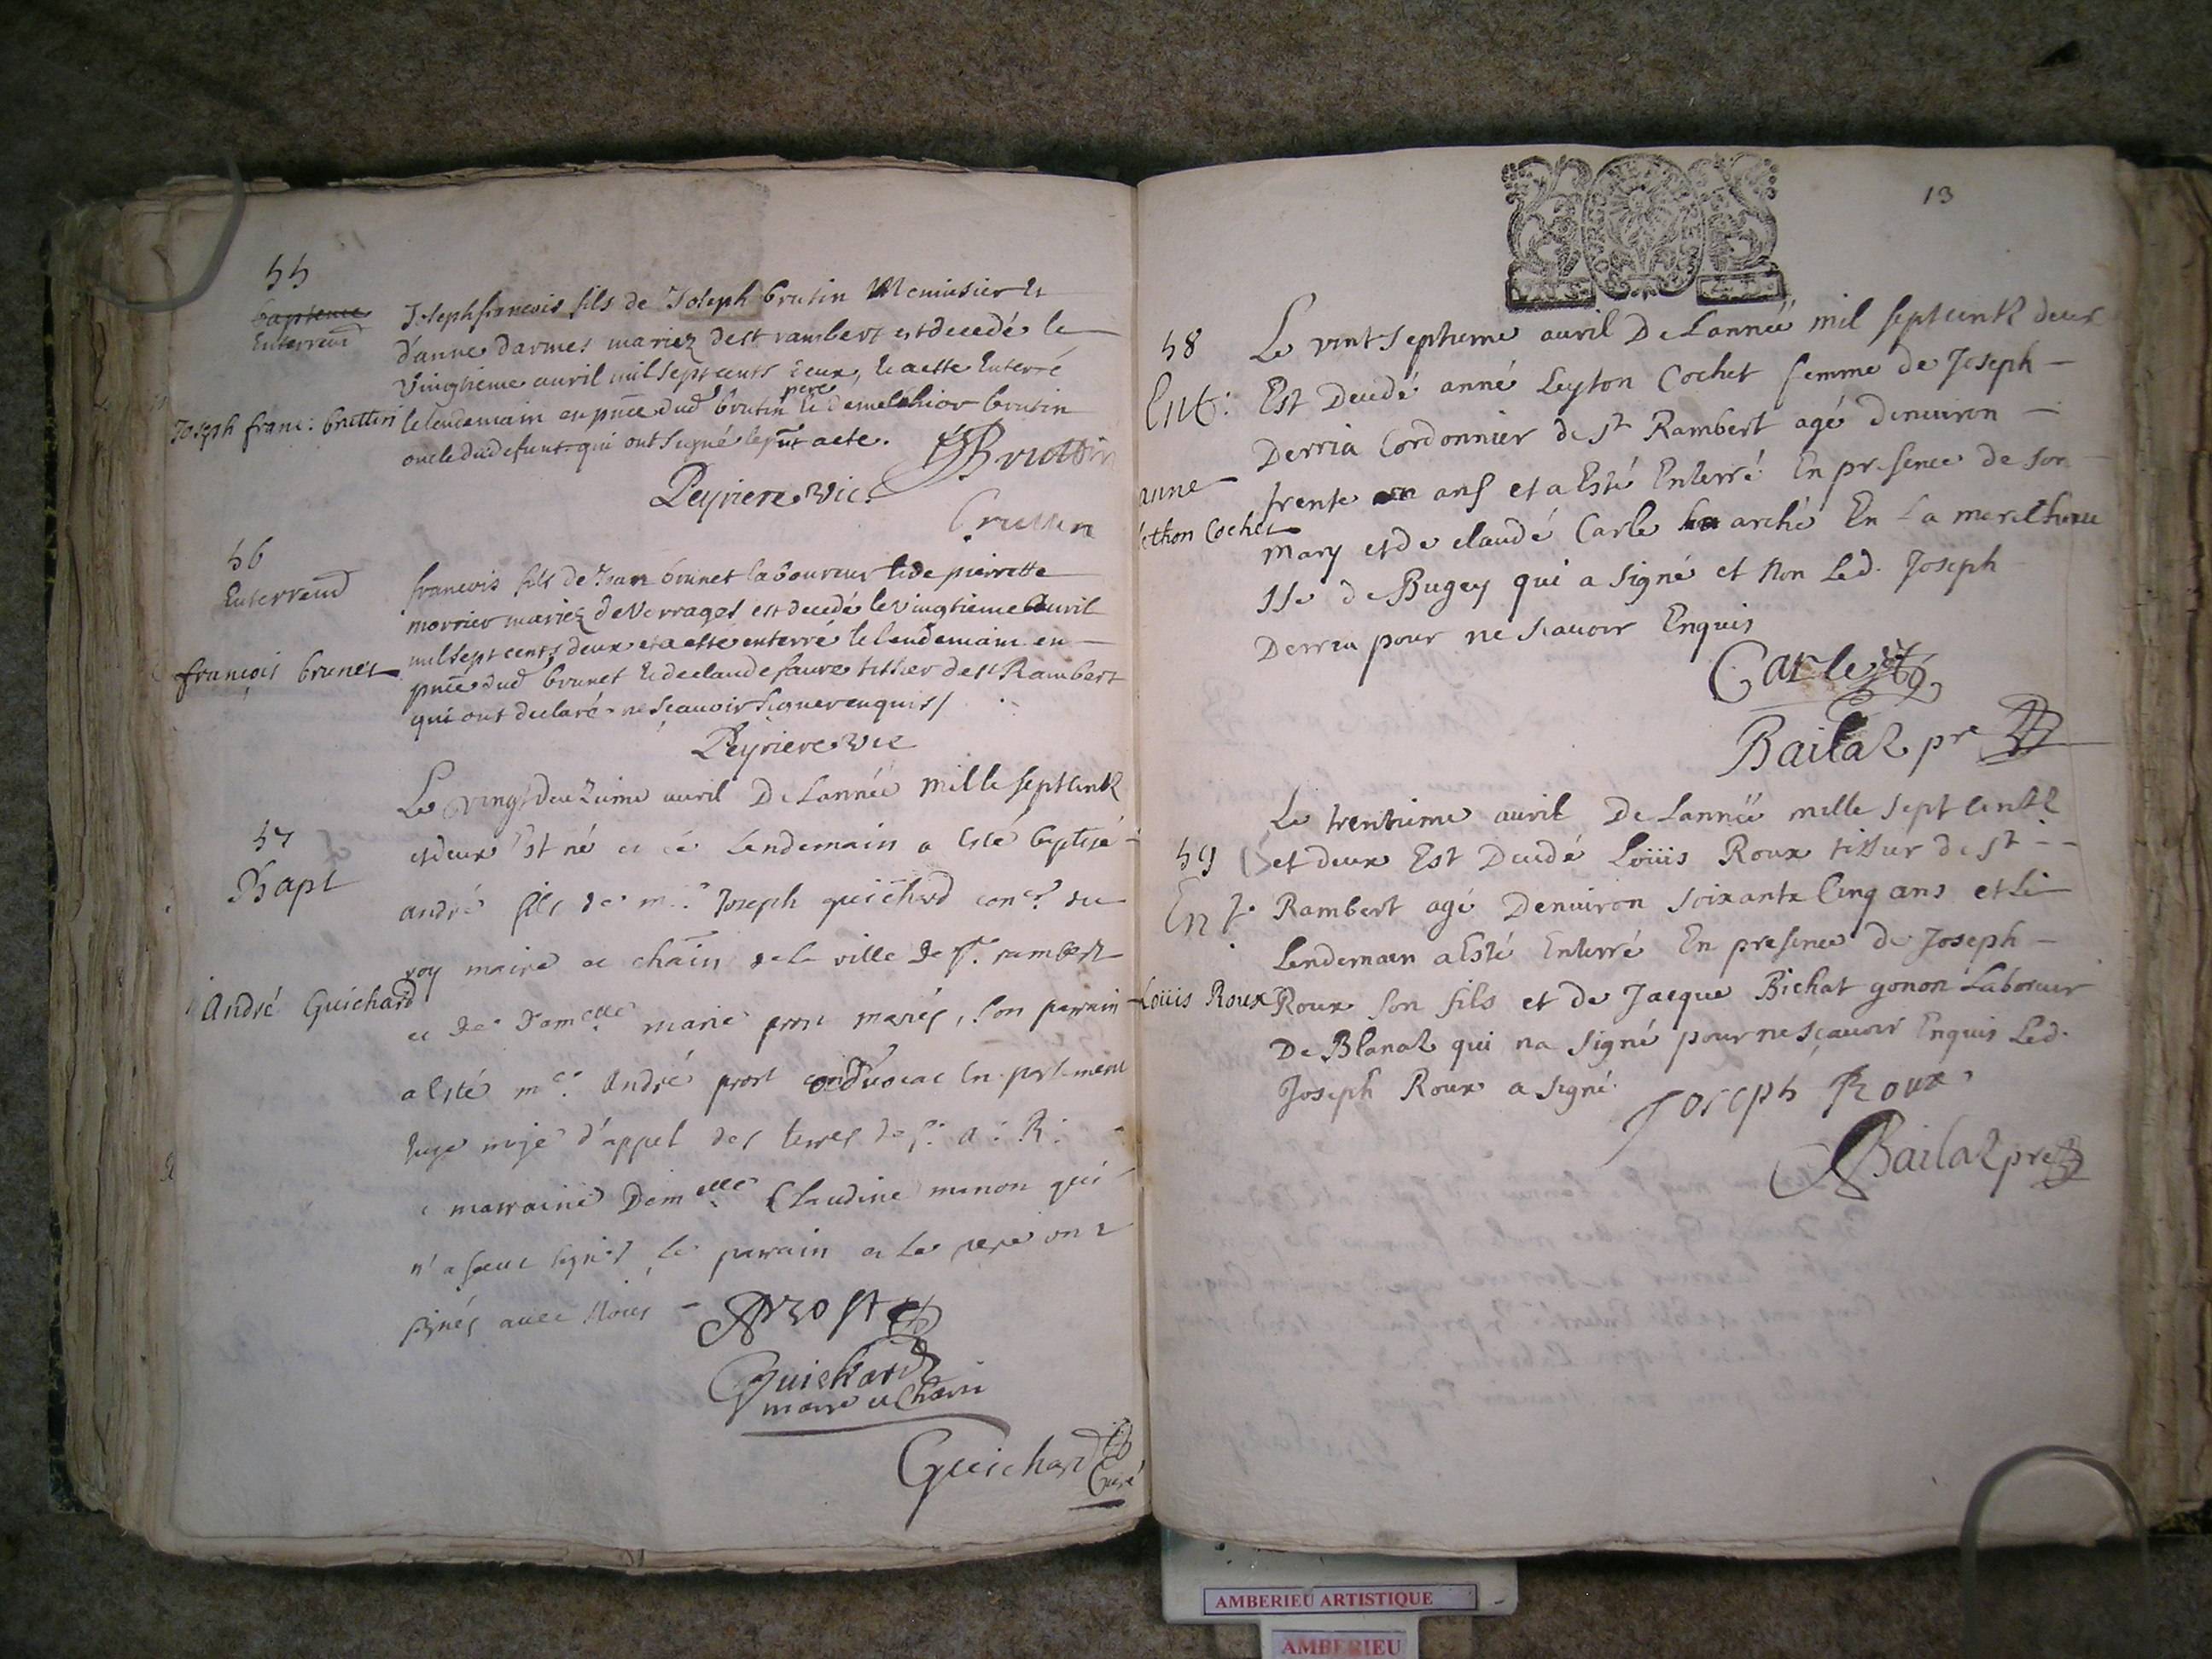 55
Enterrem̄
Joseph franc: bruttin
Joseph francois fils de Joseph brutin Menuisier et
d'anne darmes mariez de st rambert est decedé le
Vingtieme auril mil sept cents deux, et a este Enterré
le lendemain en pn̄ce dud brutin pere et de melchior brutin
oncle dud defunt qui ont signé le pn̄t acte.
Bruttin
Peyriere vic.
bruttin
56
Enterrem̄
françois brunet
francois fils de Jean brunet laboureur et de pierrette
morrier mariez de Vorrages est decedé le vingtieme Auril
mil sept cents deux et a este enterré le lendemain en
pn̄ce dud brunet et de claude faure tissier de st Rambert
qui ont declaré ne sçauoir signer enquis/
Peyriere vic
57
Bapt
André Guichard
Le vingtdeuzieme auril De Lannée mille septcentz
et deux Est né et le Lendemain a Esté baptisé
andré fils de mre Joseph guichard coner du
roy maire de chain de la ville de st. rambert
et de Damelle marie prost mariés, son parrain
a Esté mre. andré prost aduocat En parlement
Juge maje d'appel des terres de s: a: R:
marraine Demelle Claudine manon qui
n'a sceue signer le parrain et le pere ont
signés auec Nous
Prost
Guichard
maire de Chain
Guichard
Curé
13
58
Ent:
anne
lethon Cochet
Le vint septieme auril De Lannéé mil septcentz deux
Est Decedé anné Leyton Cochet femme de Joseph
Derria Cordonnier de st Rambert agé denuiron
trente ans et a Esté Enterré En presence de son
mary et de claudé Carle archié En La marechauce
de Bugey qui a signé et Non Led. Joseph
Derria pour ne scauoir Enquis
Carle
Bailaz pre
59
Ent.
Loüis Roux
Le trentieme auril De Lannéé mille sept centz
et deux Est Decedé Loüis Roux tissur de st
Rambert agé Denuiron soixante Cinq ans et Le
Lendemain a Esté Enterré En presence de Joseph
Roux son fils et de Jacque Bichat gonon Laboreur
De Blanaz qui na signé pour ne sçauoir Enquis Led.
Joseph Roux a signé.
Joseph Roux
Bailaz pre
AMBERIEU ARTISTIQUE
AMBERIEU